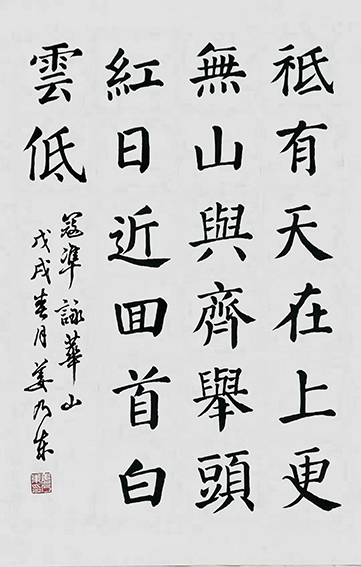 祗有天在上更
無山與齊舉頭
紅日近回首白
雲低
寇準詠華山
戊戌春月姜乃東